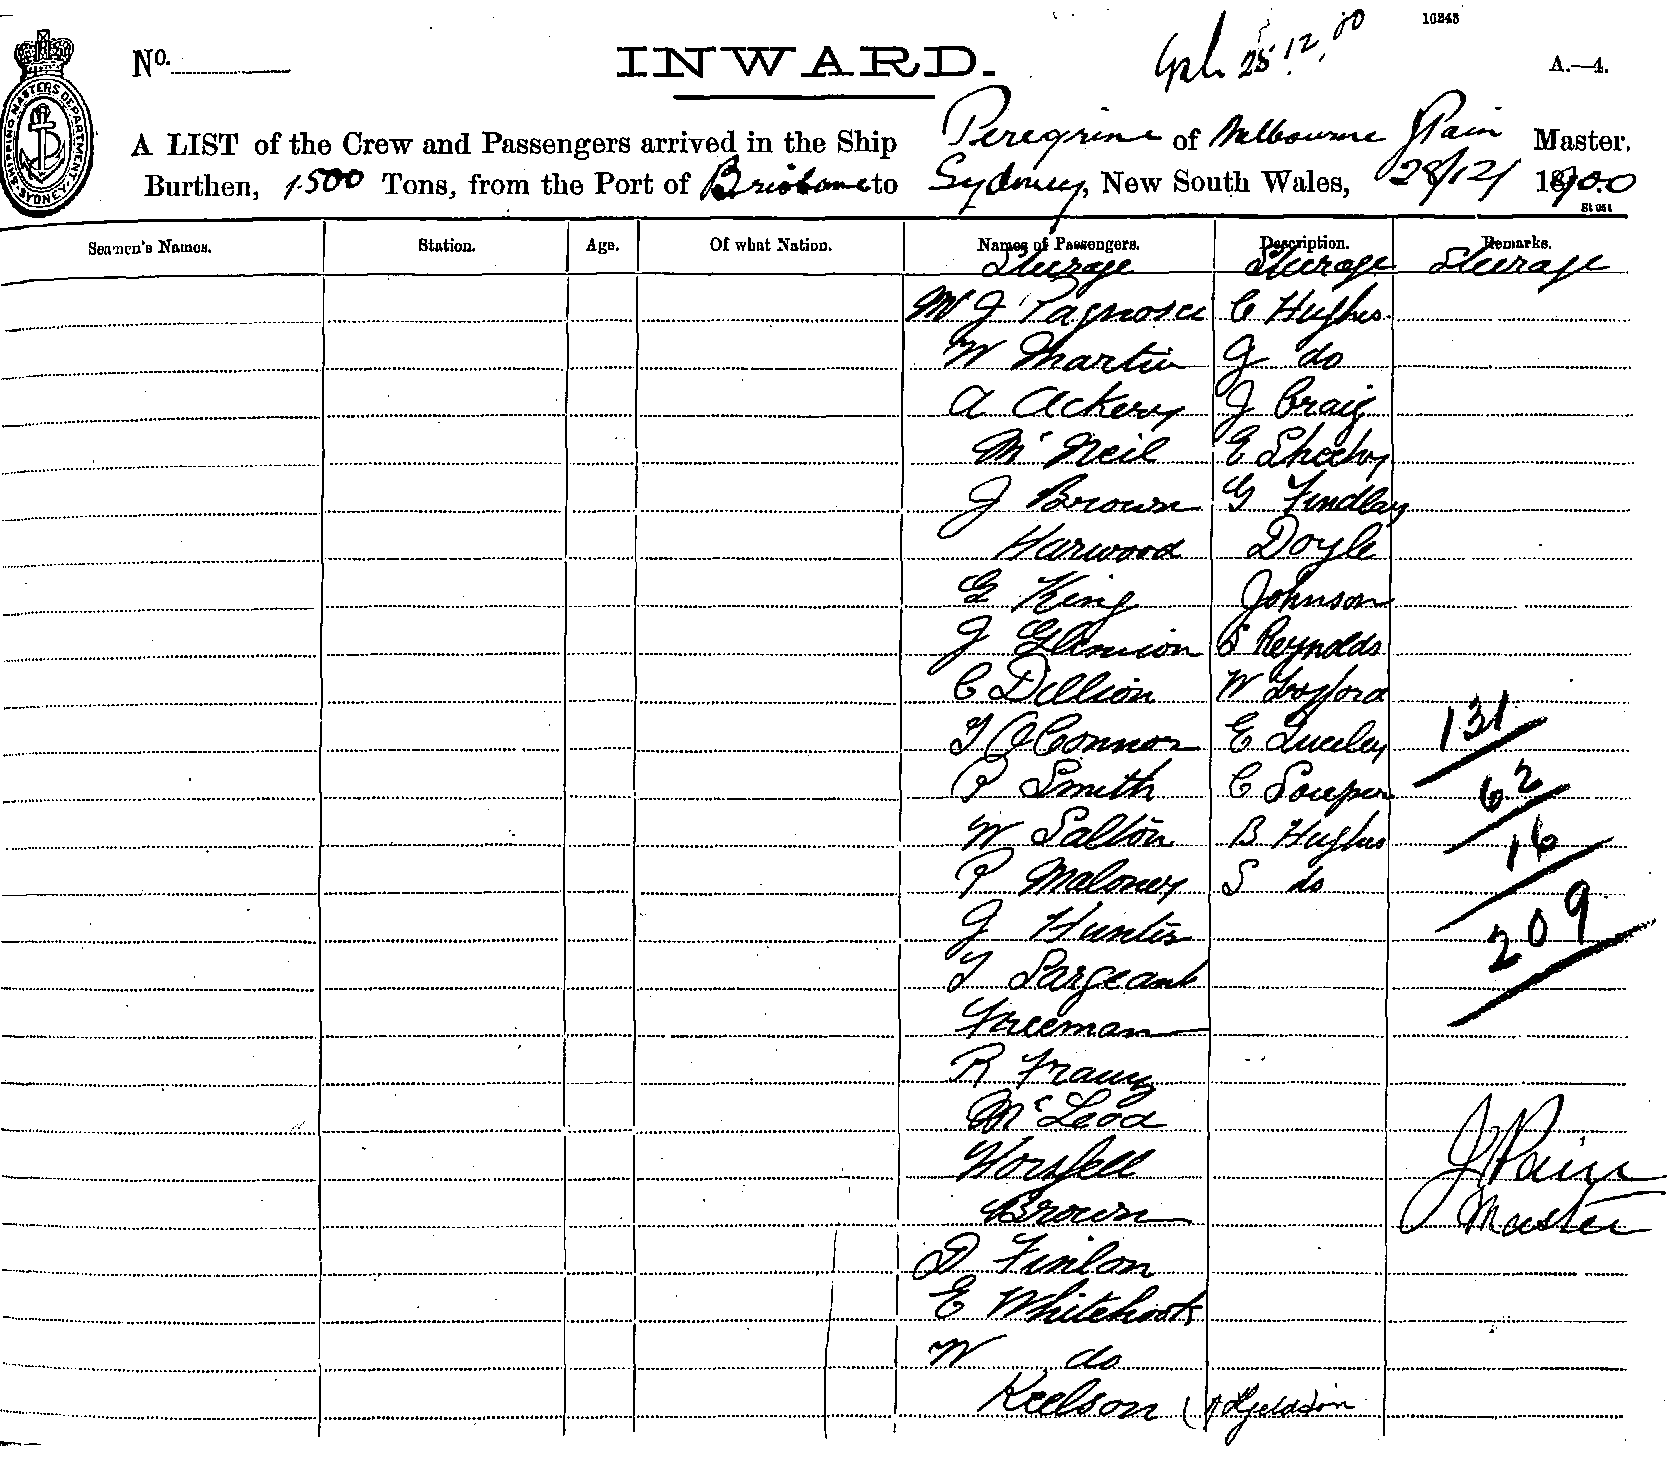 16243
No.
INWARD.
25.12.00
A.—4.
SHIPPING MASTERS DEPARTMENT SYDNEY
A LIST of the Crew and Passengers arrived in the Ship Peregrine of Melbourne J Pain Master,
Burthen, 1500 Tons, from the Port of Brisbane to Sydney, New South Wales, 28/12/ 1900
Seamen's Names. Station. Age. Of what Nation. Names of Passengers. Description. Remarks.
Steerage Steerage Steerage
C Hughes
W Martin J do
A Ackery J Craig
Mc Neil E Sheehy
J Brown G Findlay
Harwood Doyle
G King Johnson
J Reynolds
C Dillion W
T O'Connor E
131
P Smith C Souper
62
W Salton B Hughes
16
P Maloney S do
J Hunter
209
T Sargeant
Freeman
R
McLeod
Worsfell J Pain
Brown Master
D Finlon
E Whitehook
W do
Keelson